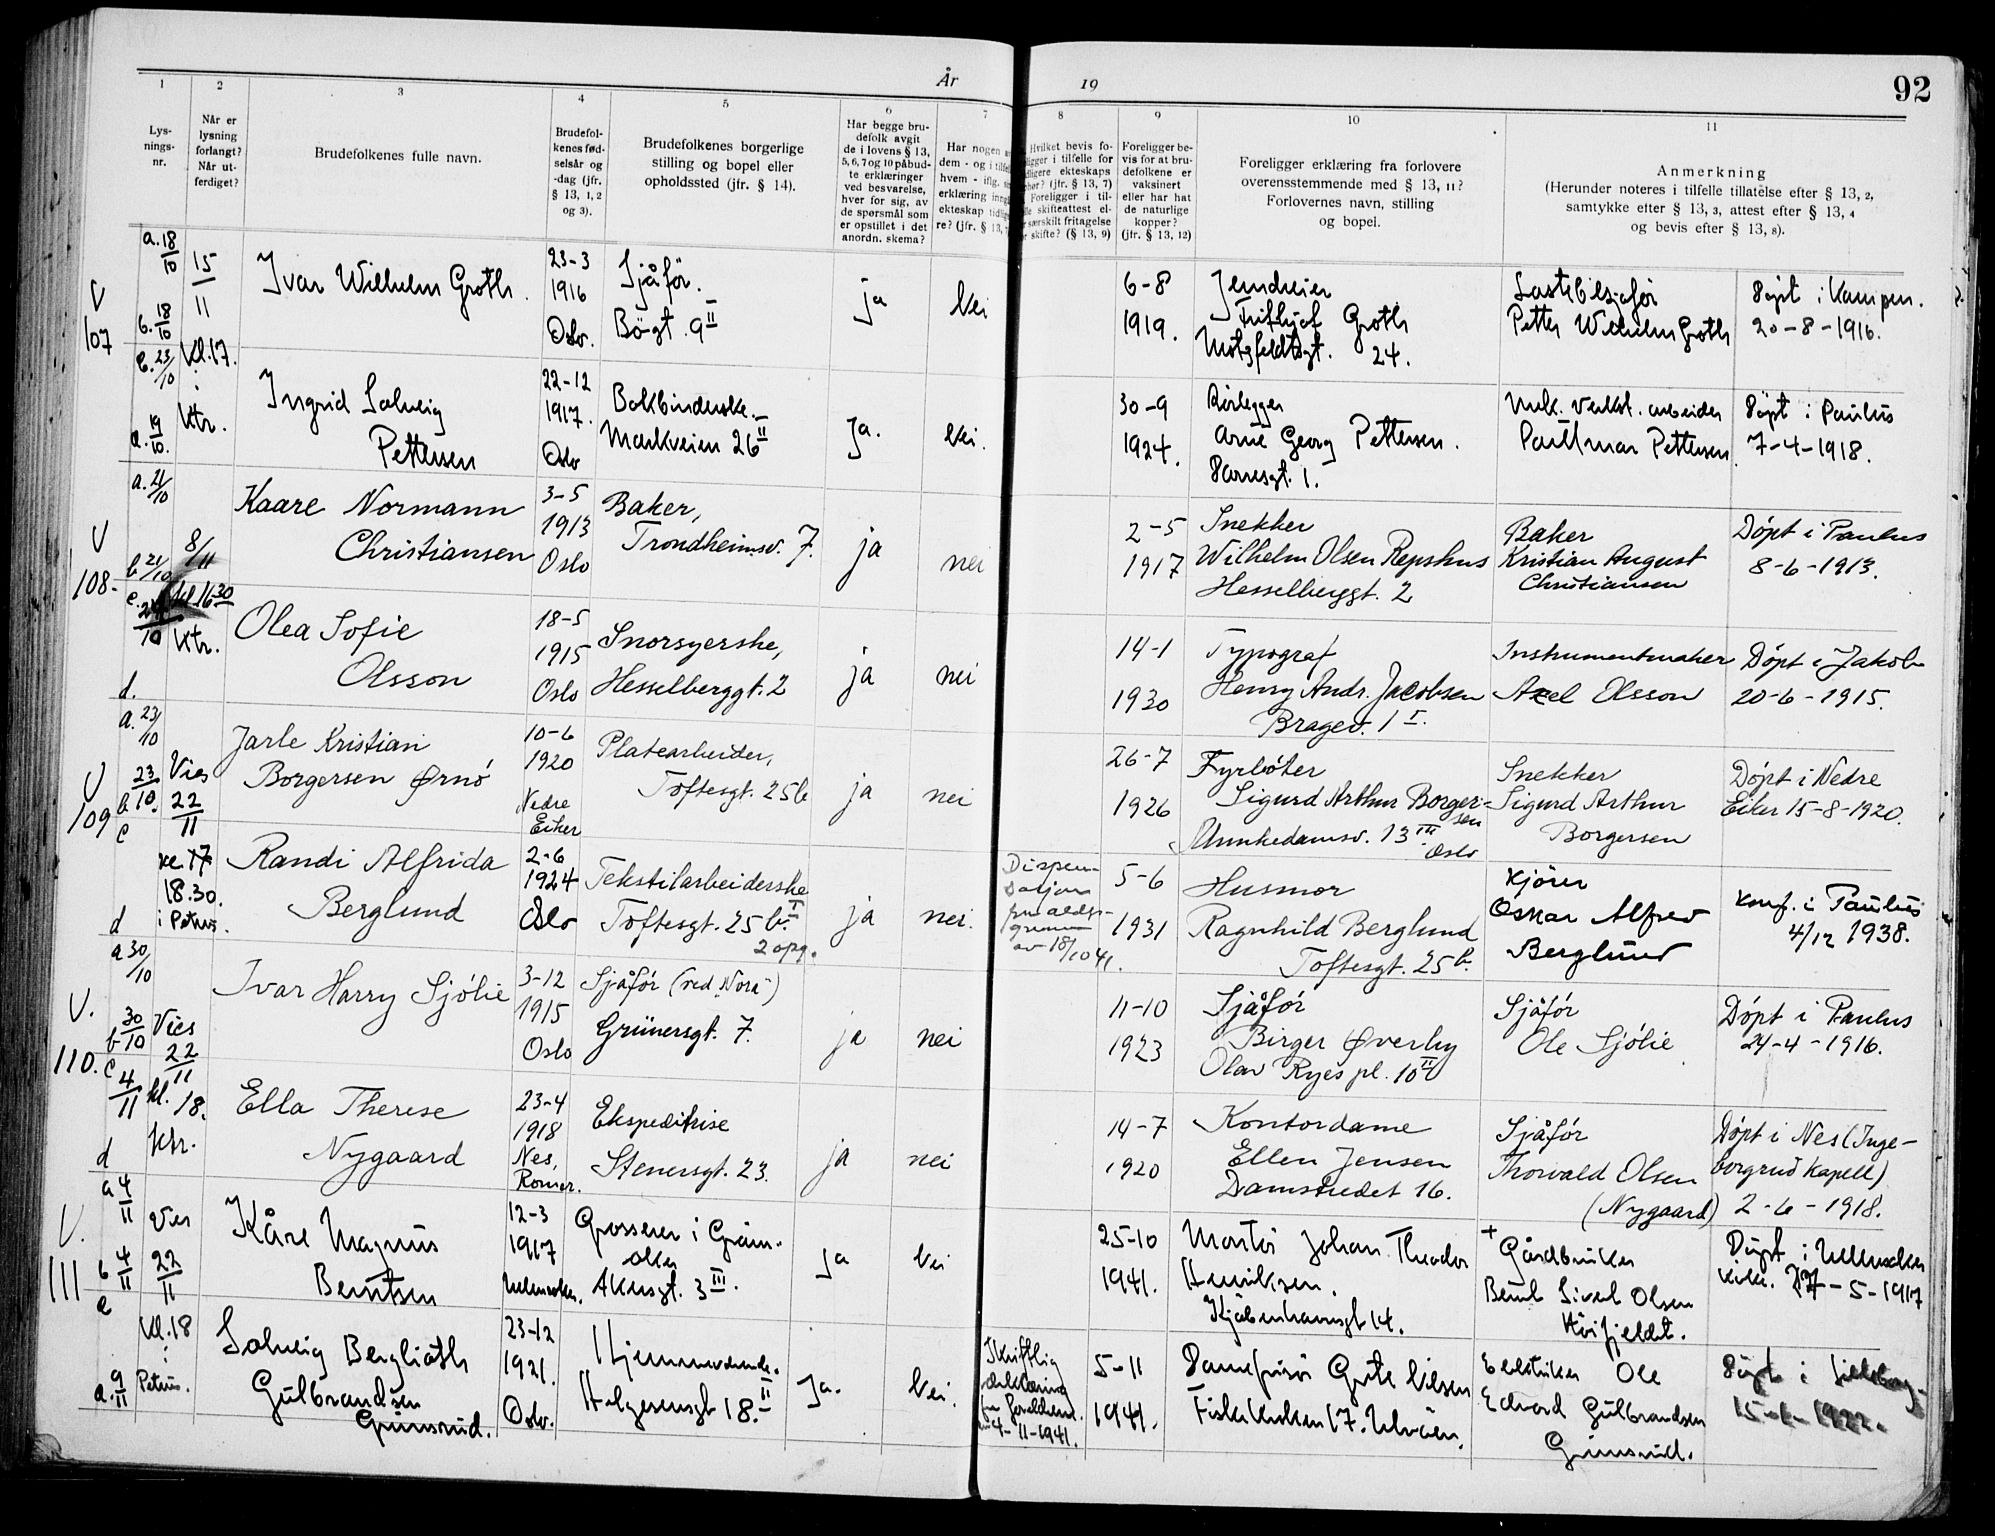 År 19
92
1 2 3 4 5 6 7 8 9 10 11
Lys-
nings-
nr.
Når er
lysning
forlangt?
Når ut-
ferdiget?
Brudefolkenes fulle navn.
Brudefol-
kenes fød-
selsår og
-dag (jfr.
§ 13, 1, 2
og 3).
Brudefolkenes borgerlige
stilling og bopel eller
opholdssted (jfr. § 14).
Har begge bru-
defolk avgit
de i lovens § 13,
5, 6, 7 og 10 påbud-
te erklæringer
ved besvarelse,
hver for sig, av
de spørsmål som
er opstillet i det
anordn. skema?
Har nogen
dem - og i
hvem - iflg.
erklæring
ekteskap
re? (jfr. § 13,
Hvilket bevis fo-
ligger i tilfelle for
ekteskaps
(jfr. § 13, 7)
Foreligger i til-
skifteattest el-
særskilt fritagelse
skifte? (§ 13, 9)
Foreligger be-
vis for at bru-
defolkene er
vaksinert
eller har hat
de naturlige
kopper?
(jfr. § 13, 12)
Foreligger erklæring fra forlovere
overensstemmende med § 13, 11?
Forlovernes navn, stilling
og bopel.
Anmerkning
(Herunder noteres i tilfelle tillatelse efter § 13, 2,
samtykke efter § 13, 3, attest efter § 13, 4
og bevis efter § 13, 8).
V
107
a. 18/10
b. 18/10
c. 23/10
d. 19/10.
15/11
kl. 17.
i
ktr.
Ivar Wilhelm Groth.
23-3
1916
Oslo.
Sjåfør.
Bøgt. 9 II
ja
Nei
6-8
1919.
Fritkjof Groth
Motzfeldtsgt. 24.
Lastebilsjafør
Petter Wilhelm Groth
Døpt i Kampen.
20-8-1916.
Ingrid Solveig
Pettersen
22-12
1917.
Oslo
Bokbinderske.
Markveien 26 II
Ja.
Nei.
30-9
1924.
Rørlegger
Arne Georg Pettersen.
Mek. verkst. arbeider
Pettersen.
Døpt i Paulus
7-4-1918.
V
108.
a. 21/10
b 21/10
c. 24/10
d.
8/11
kl 16 30
ktr.
Kaare Normann
Christiansen
3-5
1913
Oslo
Baker,
Trondheimsv. 7.
ja
nei
2-5
1917
Snekker
Wilhelm Olsen Repshus
Hesselberggt. 2
Baker
Kristian August
Christiansen
Døpt i Paulus
8-6-1913.
Olea Sofie
Olsson
18-5
1915
Oslo
Snorsyerske,
Hesselberggt. 2
ja
nei
14-1
1930
Typograf
Henry Andr. Jacobsen
Bragev. 1 I.
Instrumentmaker
Axel Olsson
Døpt i Jakob
20-6-1915.
V
109
a. 23/10
b 23/10.
c
d
Vies
22/11
kl. 17
18.30.
i Petrus.
Jarle Kristian
Borgersen Ørnø
10-6
1920
Nedre
Eiker
Platearbeider,
Toftesgt. 25 b
ja
nei
26-7
1926
Fyrbøter
Sigurd Arthur Borger-
sen
Munkedamsv. 13 III
Oslo
Snekker
Sigurd Arthur
Borgersen
Døpt i Nedre
Eiker 15-8-1920.
Randi Alfrida
Berglund
2-6
1924
Oslo
Tekstilarbeiderske
Toftesgt. 25 b. I
2 opg.
ja
nei.
Dispen-
sasjon
fra alders-
grensen
av 18/10 41.
5-6
1931
Husmor
Ragnhild Berglund
Toftesgt. 25 b.
Kjører
Oskar Alfred
Berglund
Konf. i Paulus
4/12 1938.
V.
110.
a 30/10
b 30/10
c 4/11
d
Vies
22/11
kl. 18.
ktr.
Ivar Harry Sjølie
3-12
1915
Oslo
Sjåfør (ved „Nora")
Grünersgt. 7.
ja
nei
11-10
1923
Sjåfør
Birger Øverby
Olav Ryes pl. 10 II
Sjåfør
Ole Sjølie
Døpt i Paulus
24-4-1916.
Ella Therese
Nygaard
23-4
1918
Nes,
Romer.
Ekspeditrise
Stenersgt. 23.
ja
nei
14-7
1920
Kontordame
Ellen Jensen
Damstredet 16.
Sjåfør
Thorvald Olsen
(Nygaard)
Døpt i Nes (Inge-
borgrud Kapell)
2-6-1918.
V.
111
a 4/11
b 4/11
c
d. 9/11
Vies
22/11
kl. 18
i
Petrus.
Kåre Magnus
Berntsen
12-3
1917
Grosserer i
Akersgt. 3 III.
Ja
Nei
25-10
1941.
Montør Johan Theodor
Henriksen.
Kjøbenhavnsgt 14.
+
Gårdbruker
Bernt Sivert Olsen
Døpt i
kirke. 27-5-1917
Solveig Berglioth
Gulbrandsen
Grimsrud.
23-12
1921.
Oslo.
Hjemmeværende.
Helgesensgt 18. II
Ja.
Nei.
Skriftlig
erklæring
fra foreldrene.
4-11-1941.
5-11
1941.
Damefrisør Grete Nilsen
Elektriker Ole
Edvard Gulbrandsen
Grimsrud.
Døpt i